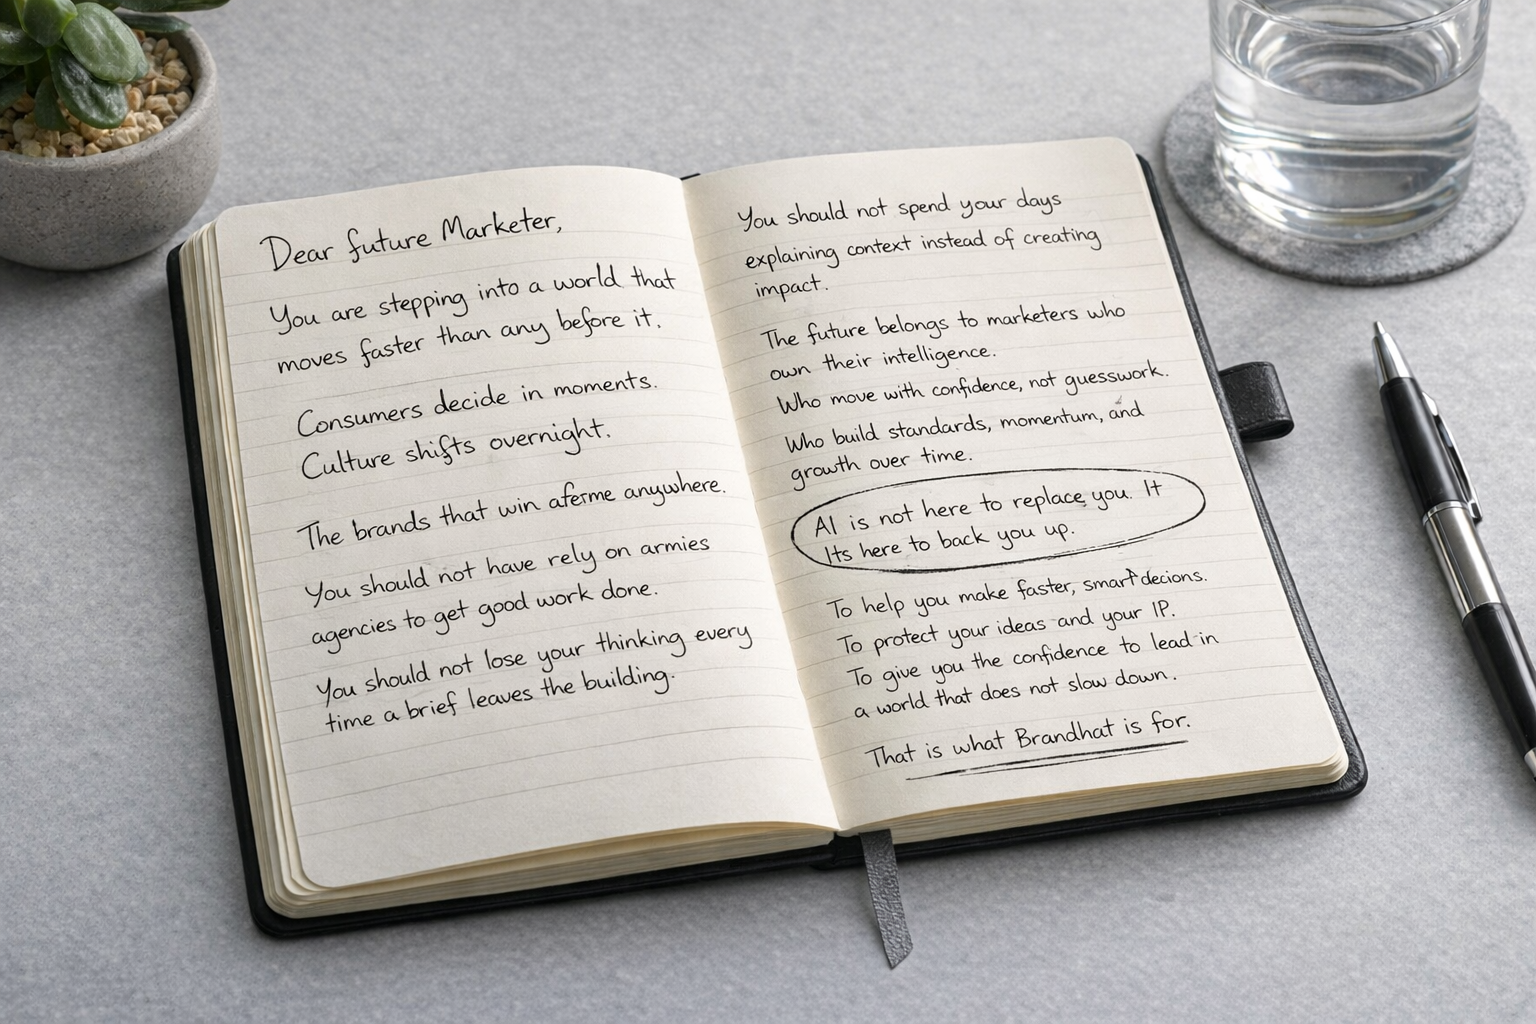 Dear future Marketer,
You are stepping into a world that
moves faster than any before it.
Consumers decide in moments.
Culture shifts overnight.
The brands that win aferme anywhere.
You should not have rely on armies
agencies to get good work done.
You should not lose your thinking every
time a brief leaves the building.
You should not spend your days
explaining context instead of creating
impact.
The future belongs to marketers who
own their intelligence.
Who move with confidence, not guesswork.
Who build standards, momentum, and
growth over time.
AI is not here to replace you. It
Its here to back you up.
To help you make faster, smart decions.
To protect your ideas and your IP.
To give you the confidence to lead in
a world that does not slow down.
That is what Brandhat is for.